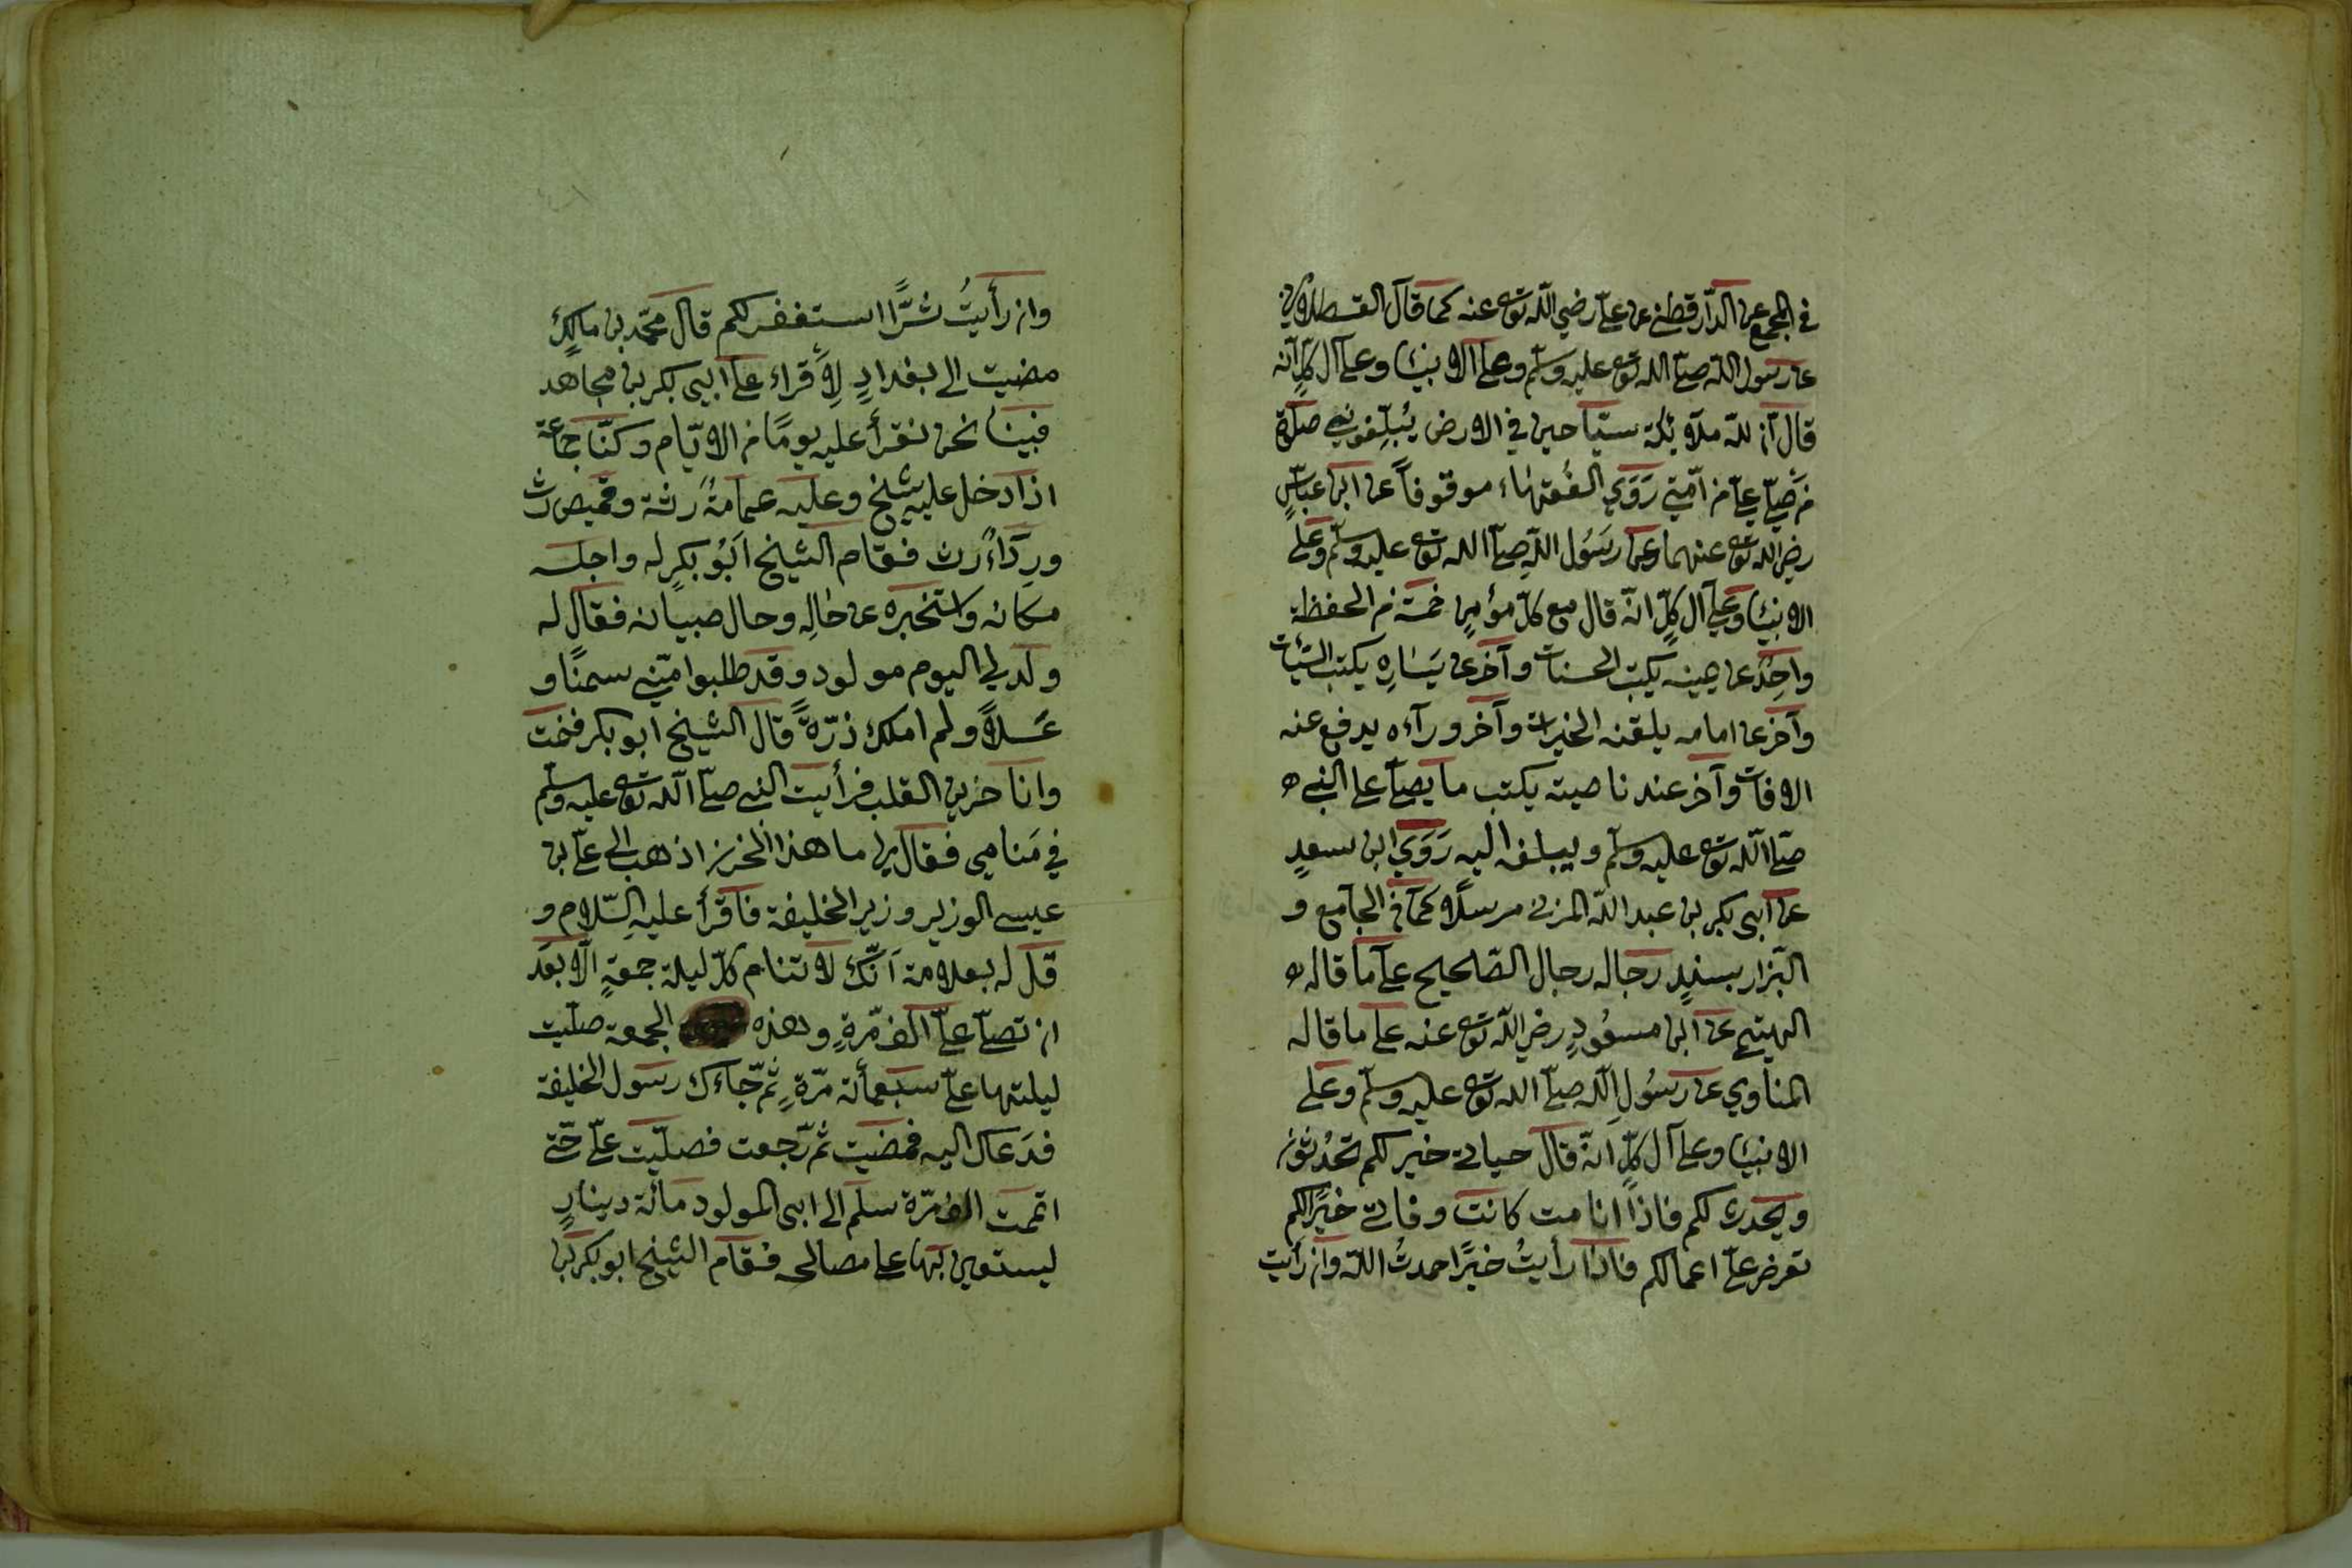 في المجمع عن الدّارقطني عن عليّ رضي اللّه تع عنه كما قال القسطلاني
عن رسول اللّه صلّى اللّه تع عليه وسلّم وعلى الانبياء وعلى آل كلٍّ انّه
قال انّ للّه ملآئكة سيّاحين في الارض يُبلِّغوني صلاة
من صلّى عليّ من امّتي رَوَي الفُقهاء موقوفاً عن ابن عبّاسٍ
رضي اللّه تع عنهما وعن رسَوُل اللّه صلّى اللّه تع عليه وسلّم وعلى
الانبياء وعلى آل كلٍّ انّه قال مع كلّ مؤمنٍ خمسة من الحفظة
واحِدٌ عن يمينه يكتب الحسنات وآخر عن يَسَارِه يكتب السّيّئات
وآخر عن امامه يلقنه الخيرات وآخر ورآءه يدفع عنه
الافات وآخر عند ناصيته يكتب ما يصلّى على النبي
صلّى اللّه تع عليه وسلّم ويبلغه اليه رَوَي ابن سعدٍ
عن ابي بكر بن عبد اللّه المزني مرسلًا كما في الجامع و
البّزار بسندٍ رجاله رجال الصّحيح على ما قاله
الهيتمي عن ابن مسعُودٍ رضي اللّه تع عنه على ما قاله
المناوي عن رسُولِ اللّه صلّى اللّه تع عليه وسلّم وعلى
الانبياء وعلى آل كلٍّ انّه قال حياتي خير لكم تُحدُثون
ويحدث لكم فاذا انا مت كانت وفاتي خيرًا لكم
تعرض عليّ اعمالكم فاذا رأيتُ خيرًا حمدتُ اللّه وان رأيت
وان رأيتُ شرًّا استغفر لكم قال محمّد بن مالكٍ
مضيت الى بغدادٍ لِأقراء على ابي بكر بن مجاهد
فبينا نحن نقرأ عليه يومًا من الايّام وكنّا جماعة
اذا دخل عليه شيخ وعليه عمامةٌ رثة وقميص رث
ورِدَاءٌ رث فقام الشيخ اَبُو بكرٍ له واجلسه
مكانه واستخبره عن حالِه وحال صبيانه فقال له
ولد لي اليوم مولود وقد طلبوا منّي سمنًا و
عسلًا ولم املك ذرّةً قال الشيخ ابو بكر فنمت
وانا حزين القلب فرأيت النبي صلّى اللّه تع عليه وسلّم
في مَنامي فقال لي ما هذا الحزن اذهب الى عليّ بن
عيسى الوزير وزير الخليفة فاقرأ عليه السّلام و
قل له بعلامة اَنّك لا تنام كلّ ليلة جمعةٍ الّا بعدَ
ان تصلّي عليّ الف مرّةٍ وهذه الجمعة صلّيت
ليلتها عليّ سبعمأئة مرّةٍ ثمّ جاءك رسول الخليفة
فدَعاك اليه فمضيت ثمّ رجعت فصلّيت عليّ حتّى
اتممت الف مرّة سلم الى ابي المولود مائة دينارٍ
ليستعين بها على مصالحه فقام الشيخ ابو بكر بن